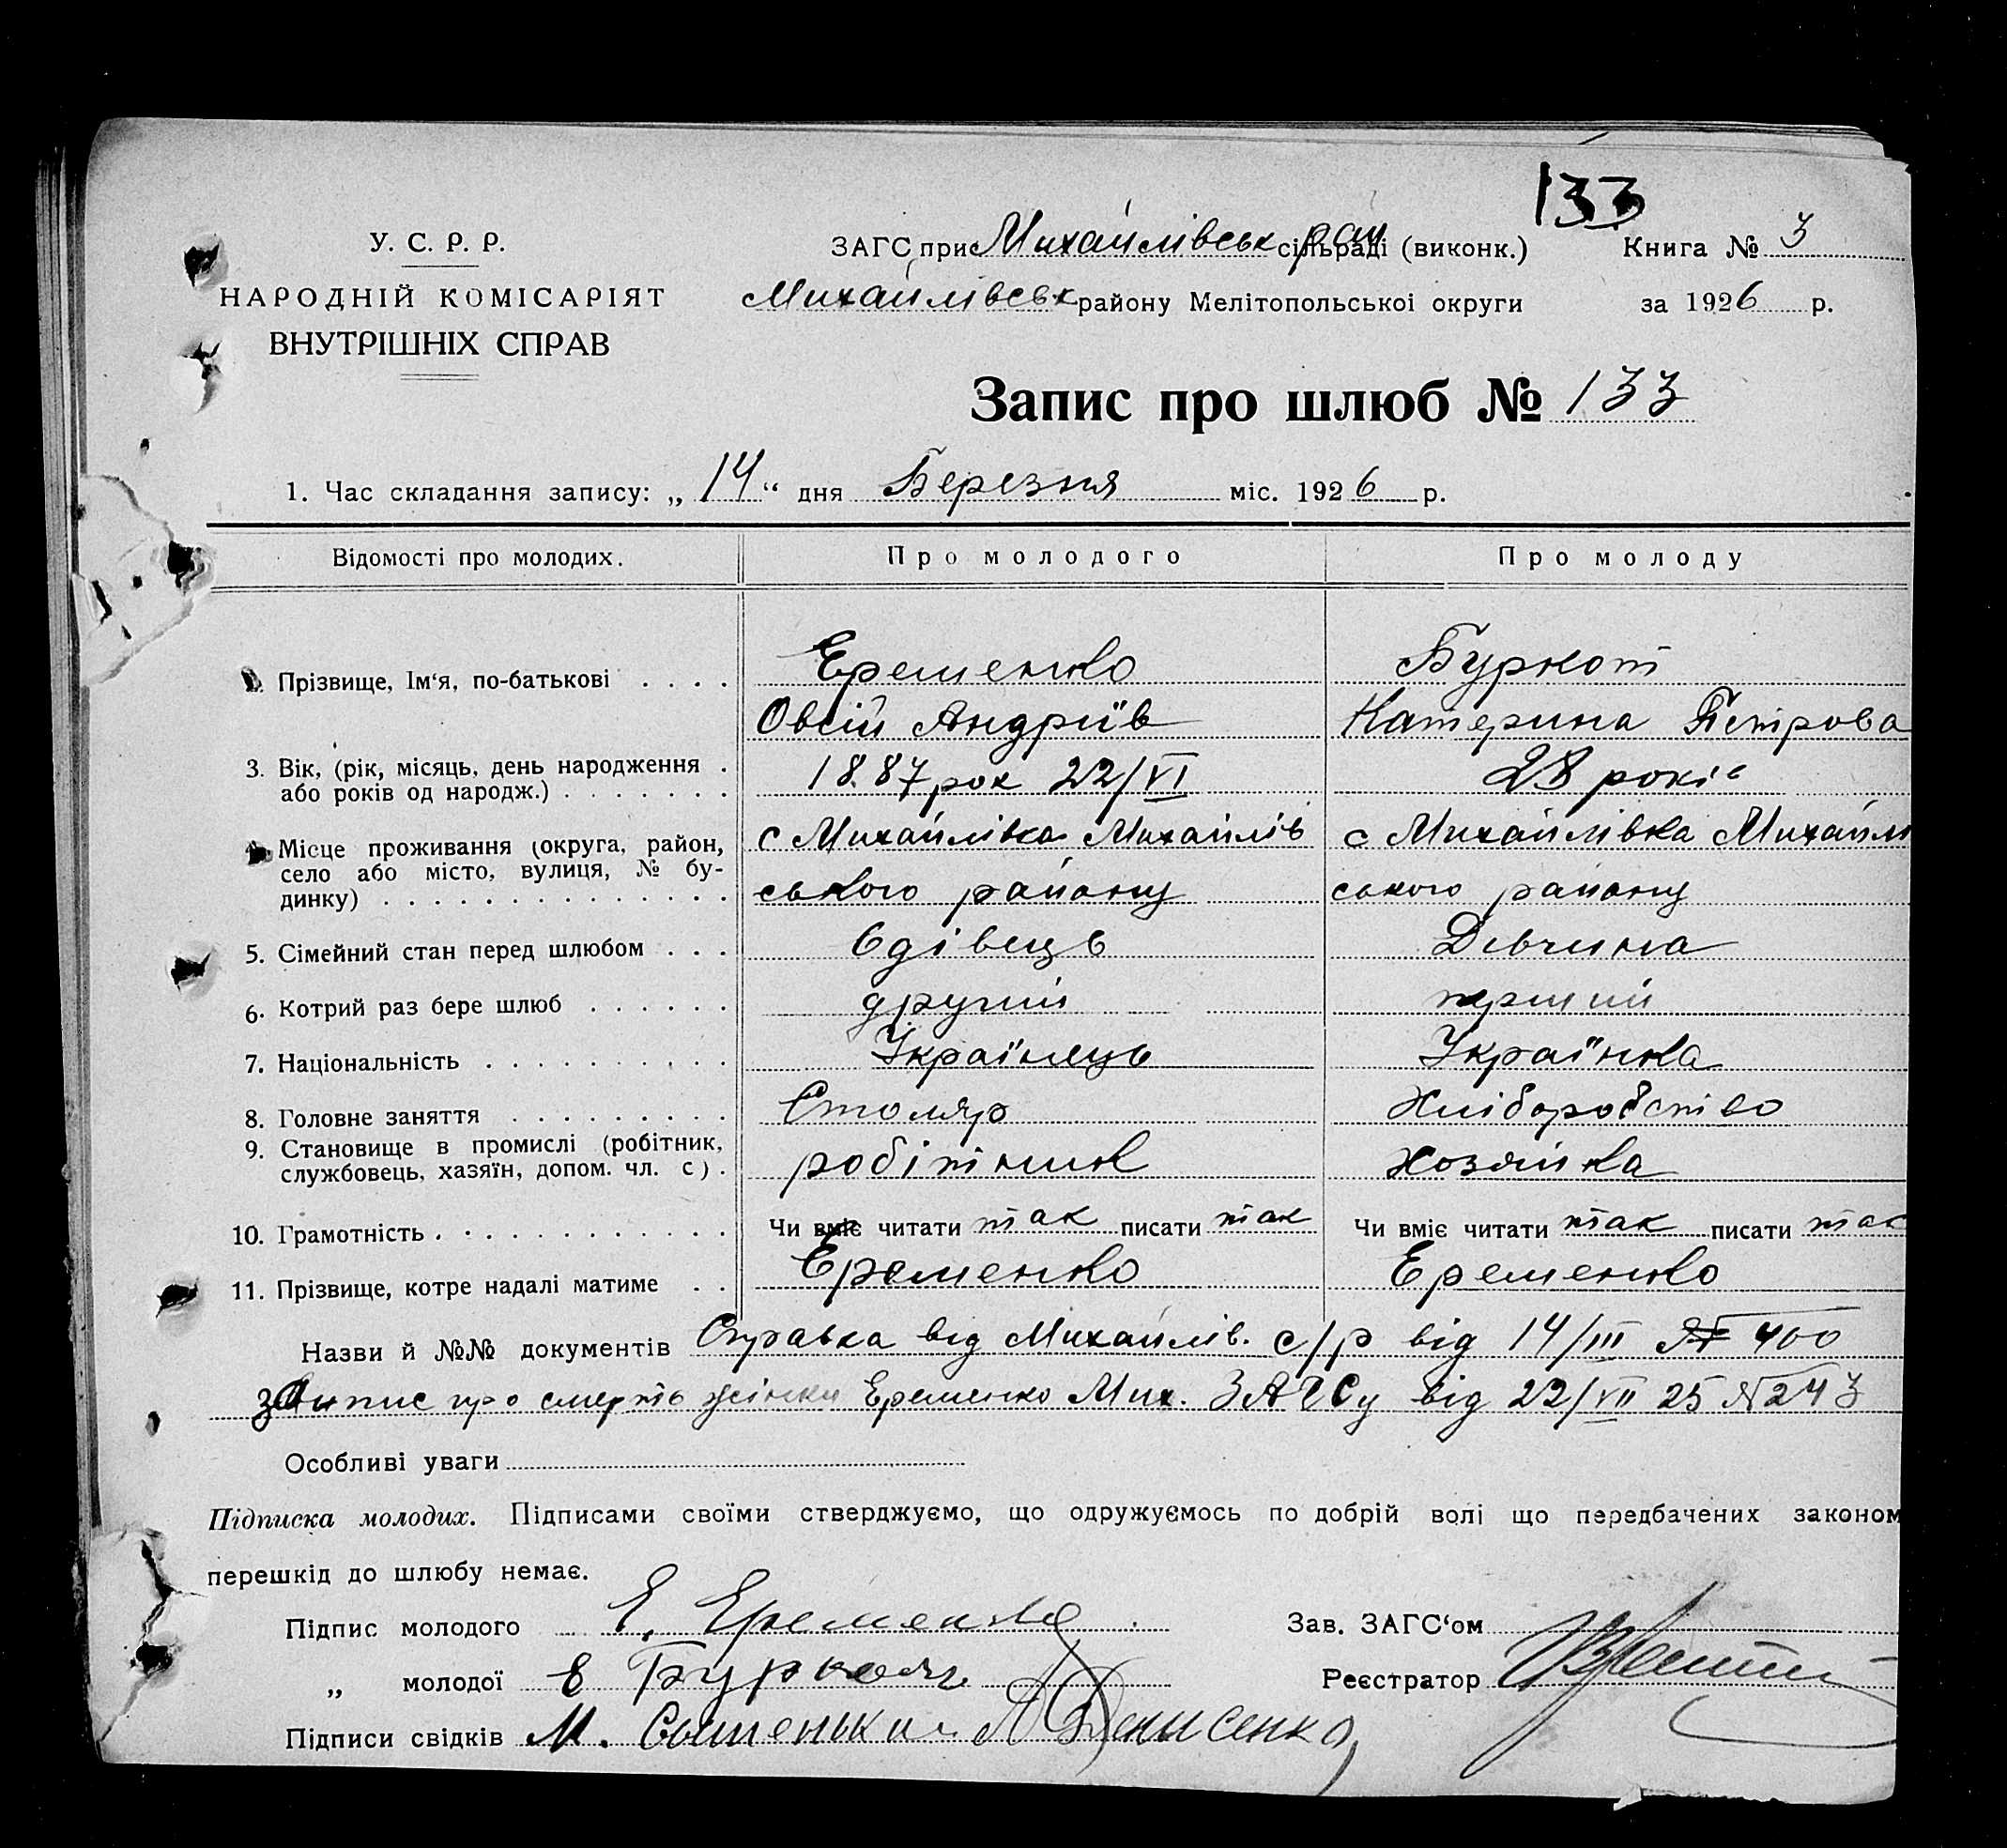 133
У. С. Р. Р.
НАРОДНІЙ КОМІСАРІЯТ
ВНУТРІШНІХ СПРАВ
ЗАГС при Михайлівськ рай сільраді (виконк.) Книга № 3
Михайлівськ району Мелітопольськоі округи за 1926 р.
Запис про шлюб № 133
1. Час складання запису: „ 14 “ дня Березня міс. 1926 р.
Відомості про молодих. Про молодого Про молоду
Прізвище, Ім‘я, по-батькові . . . . Еременко Буркот
Овсій Андріїв Катерина Петрова
3. Вік, (рік, місяць, день народження . 1887 рок 22/VI 28 років
або років од народж.) . . . . . . .
Місце проживання (округа, район, с Михайлівка Михайлів с Михайлівка Михайл
село або місто, вулиця, № бу-
динку) . . . . . . . . . . . . . . ського району ського району
5. Сімейний стан перед шлюбом . . . вдівець Дівчина
6. Котрий раз бере шлюб . . . . . . другий перший
7. Національність . . . . . . . . . . Українець Українка
8. Головне заняття . . . . . . . . . Столяр Хліборобство
9. Становище в промислі (робітник,
службовець, хазяїн, допом. чл. с) . робітник хозяйка
10. Грамотність . . . . . . . . . . . . Чи вміє читати так писати так Чи вміє читати так писати так
11. Прізвище, котре надалі матиме . . Еременко Еременко
Назви й №№ документів Справка від Михайлів. с/р від 14/III № 400
запис про смерть жінки Еременко Мих. ЗАГСу від 22/VII 25 № 243
Особливі уваги
Підписка молодих. Підписами своїми стверджуємо, що одружуємось по добрій волі що передбачених законом
перешкід до шлюбу немає.
Підпис молодого Е. Еременко Зав. ЗАГС‘ом
„ молодої Е Буркот Реєстратор
Підписи свідків М. А Денисенко